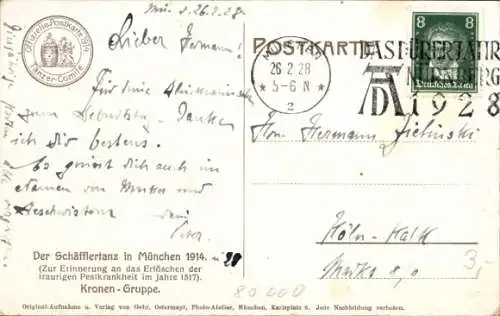 Mü. d. 26.2.28.
Offizielle Postkarte 1914
Tänzer-Comité
Lieber Hermann!
Für Deine Glückwünsche
zum Geburtstag danke
ich Dir bestens.
Es grüsst Dich auch im
Namen von Mutter und
Geschwistern
Dein
Peter.
POSTKARTE
26.2.28
5-6 N
2
DAS DÜRERJAHR
NÜRNBERG
AD 1928
8 8
Deutsches Reich
Hrn. Hermann Zielinski
Köln-Kalk
3,-
80 000
Der Schäfflertanz in München 1914. u 28
(Zur Erinnerung an das Erlöschen der
traurigen Pestkrankheit im Jahre 1517).
Kronen-Gruppe.
Original-Aufnahme u. Verlag von Gebr. Ostermayr, Photo-Atelier, München, Karlsplatz 6. Jede Nachbildung verboten.